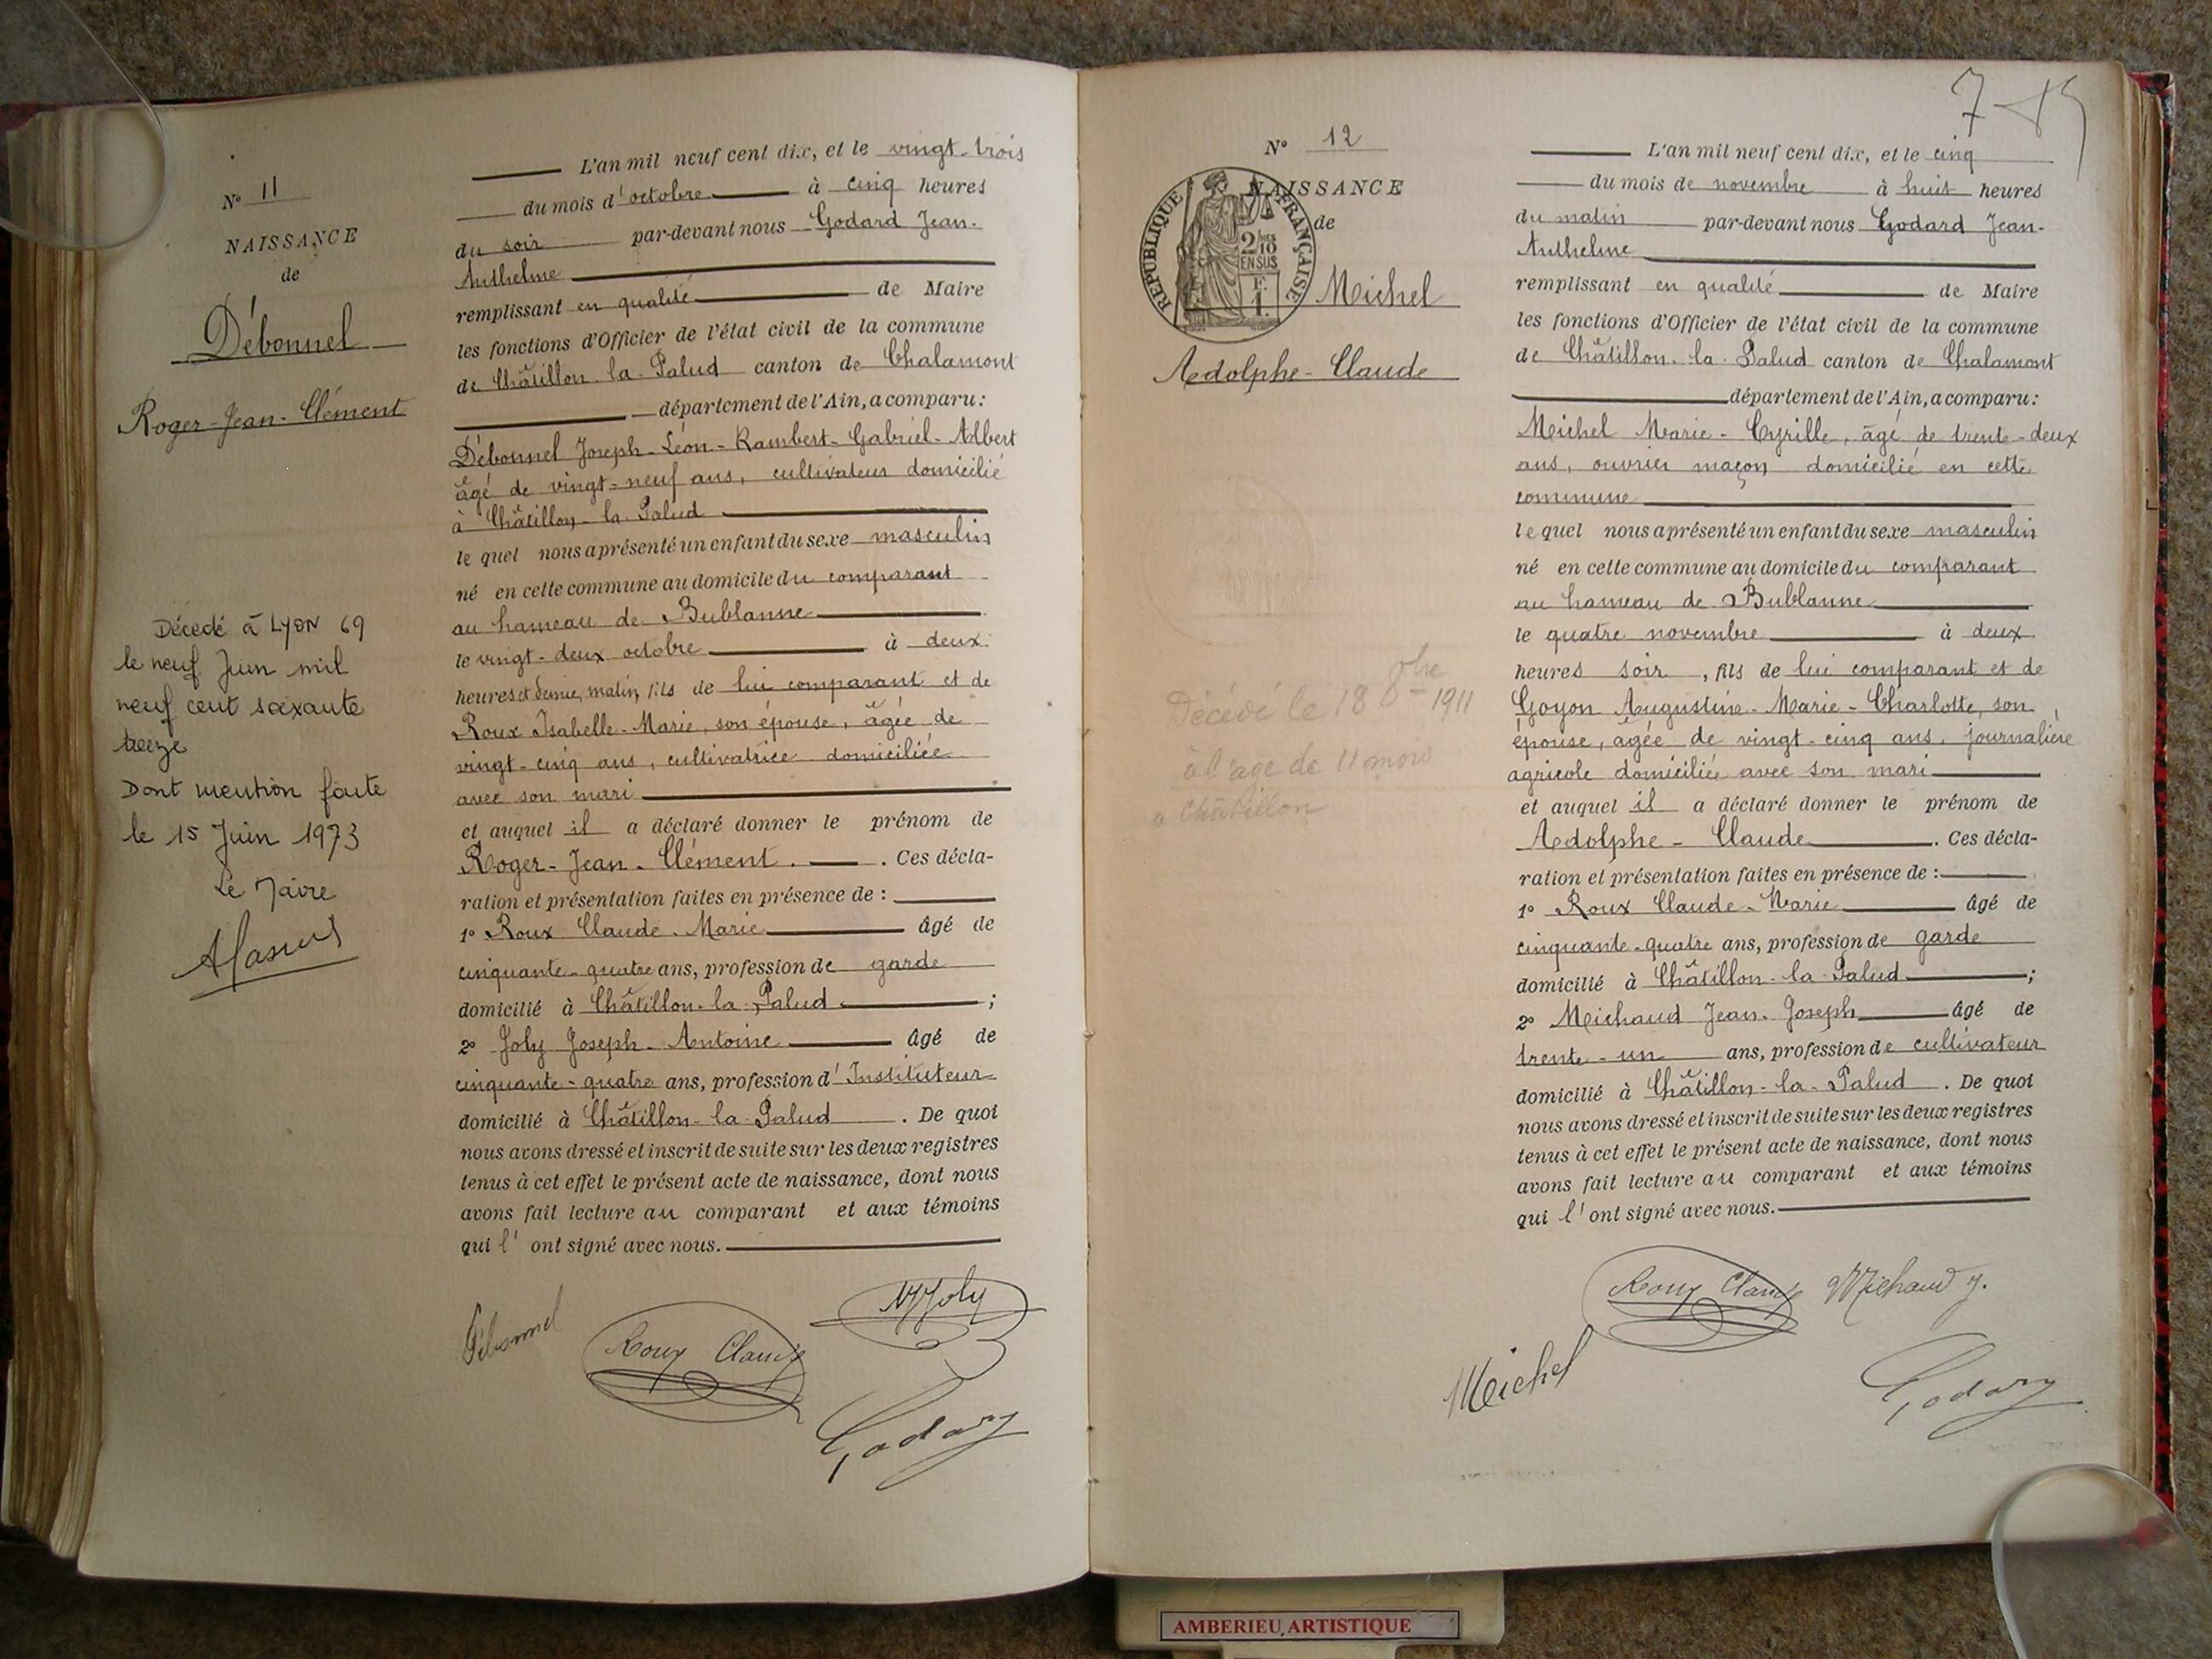 N° 11
NAISSANCE
de
Débonnel
Roger-Jean-Clément
Décedé à LYON 69
le neuf Juin mil
neuf cent soixante
treize
Dont mention faite
le 15 Juin 1973
Le Maire
L'an mil neuf cent dix, et le vingt-trois
du mois d'octobre à cinq heures
du soir par-devant nous Godard Jean-
Anthelme
remplissant en qualité de Maire
les fonctions d'Officier de l'état civil de la commune
de Châtillon-la-Palud canton de Chalamont
département de l'Ain, a comparu:
Débonnel Joseph-Léon-Rambert-Gabriel-Albert
âgé de vingt-neuf ans, cultivateur domicilié
à Châtillon-la-Palud
le quel nous a présenté un enfant du sexe masculin
né en cette commune au domicile du comparant
au hameau de Bublanne
le vingt-deux octobre à deux
heures et demie, matin, fils de lui comparant et de
Roux Isabelle-Marie, son épouse, âgée de
vingt-cinq ans, cultivatrice domiciliée
avec son mari
et auquel il a déclaré donner le prénom de
Roger-Jean-Clément. . Ces décla-
ration et présentation faites en présence de :
1° Roux Claude-Marie âgé de
cinquante-quatre ans, profession de garde
domicilié à Châtillon-la-Palud ;
2° Joly Joseph-Antoine âgé de
cinquante-quatre ans, profession d'Instituteur
domicilié à Châtillon-la-Palud . De quoi
nous avons dressé et inscrit de suite sur les deux registres
tenus à cet effet le présent acte de naissance, dont nous
avons fait lecture au comparant et aux témoins
qui l'ont signé avec nous.
Débonnel
Roux Claude
Joly
Godard
N° 12
NAISSANCE
de
RÉPUBLIQUE FRANÇAISE
2/10
EN SUS
F.
1.
Michel
Adolphe-Claude
Décédé le 18 8bre 1911
à l'age de 11 mois
a Châtillon
L'an mil neuf cent dix, et le cinq
du mois de novembre à huit heures
du matin par-devant nous Godard Jean-
Anthelme
remplissant en qualité de Maire
les fonctions d'Officier de l'état civil de la commune
de Châtillon-la-Palud canton de Chalamont
département de l'Ain, a comparu:
Michel Marie-Cyrille, âgé de trente-deux
ans, ouvrier maçon domicilié en cette
commune
le quel nous a présenté un enfant du sexe masculin
né en cette commune au domicile du comparant
au hameau de Bublanne
le quatre novembre à deux
heures soir, fils de lui comparant et de
Goyon Augustine-Marie-Charlotte, son
épouse, âgée de vingt-cinq ans, journalière
agricole domiciliée avec son mari
et auquel il a déclaré donner le prénom de
Adolphe-Claude . Ces décla-
ration et présentation faites en présence de :
1° Roux Claude-Marie âgé de
cinquante-quatre ans, profession de garde
domicilié à Châtillon-la-Palud ;
2° Michaud Jean-Joseph âgé de
trente-un ans, profession de cultivateur
domicilié à Châtillon-la-Palud . De quoi
nous avons dressé et inscrit de suite sur les deux registres
tenus à cet effet le présent acte de naissance, dont nous
avons fait lecture au comparant et aux témoins
qui l'ont signé avec nous.
Roux Claude
Michaud J.
Michel
Godard
AMBERIEU ARTISTIQUE